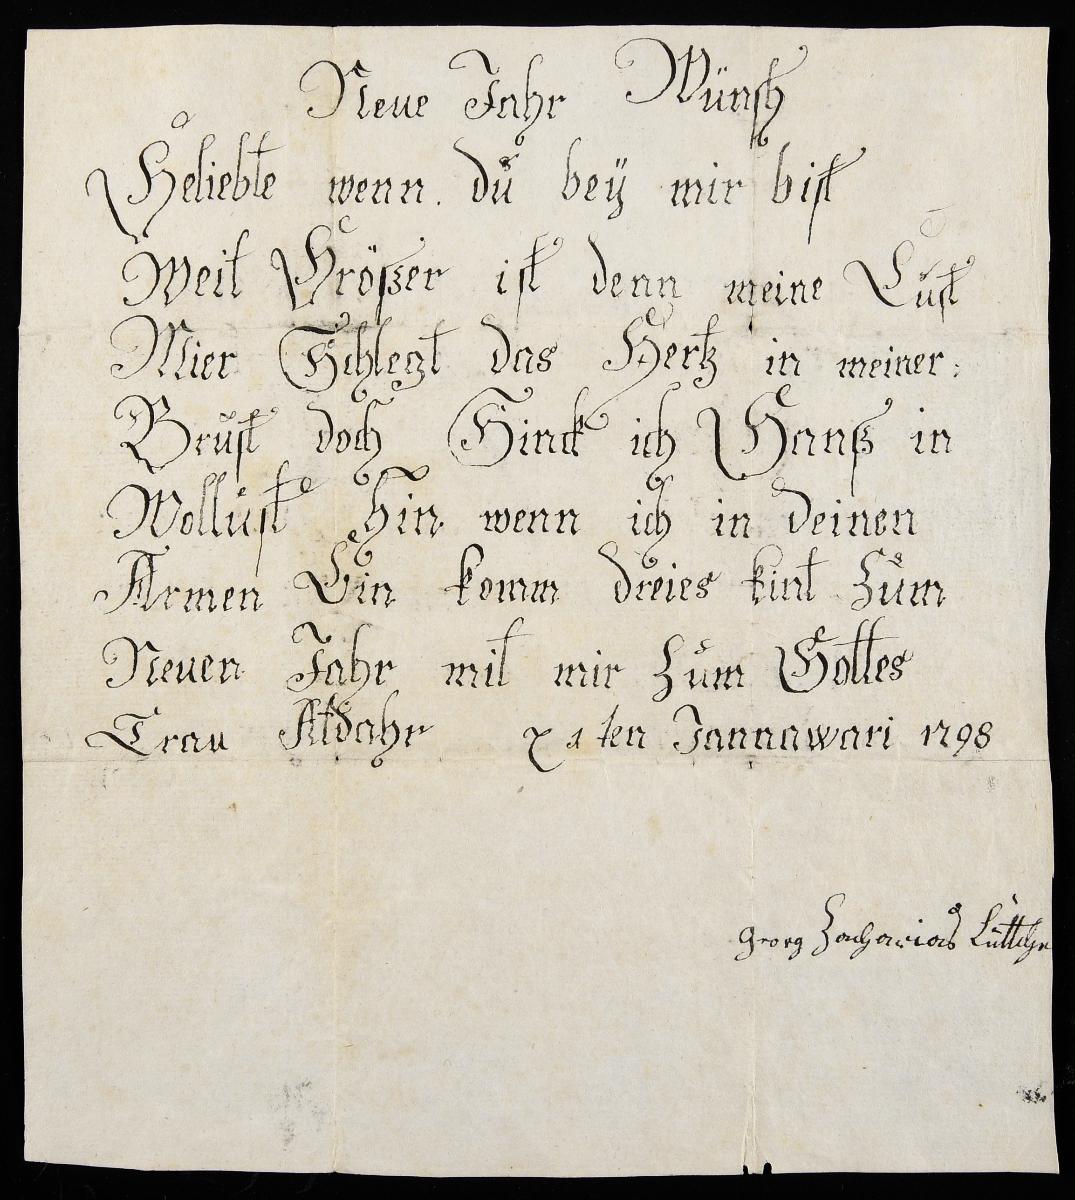 Neue Jahr Wünsch
Geliebte wenn. du bey mir bist
Weit Größer ist denn meine Lust
Mier Schlegt das Hertz in meiner:
Brust doch Sinck ich Ganß in
Wollust hin wenn ich in deinen
Armen Bin komm dreies kint Zum
Neuen Jahr mit mir Zum Gottes
Trau Altdahr 1ten Jannawari 1798
Georg Zacharias